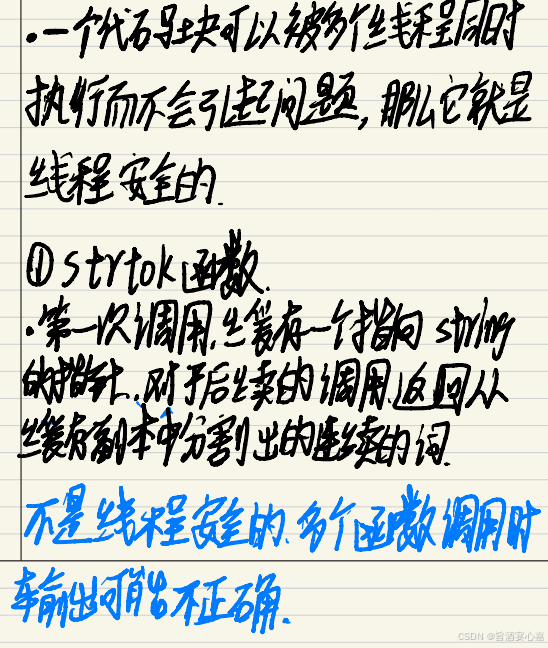 ·一个代码块可以被多个线程同时
执行而不会引起问题,那么它就是
线程安全的.
①strtok函数.
·第一次调用,缓存一个指向 string
的指针.对于后续的调用,返回从
缓存副本中分割出的连续的词.
不是线程安全的.多个函数调用时
输出可能不正确.
CSDN @旨酒宴心嘉